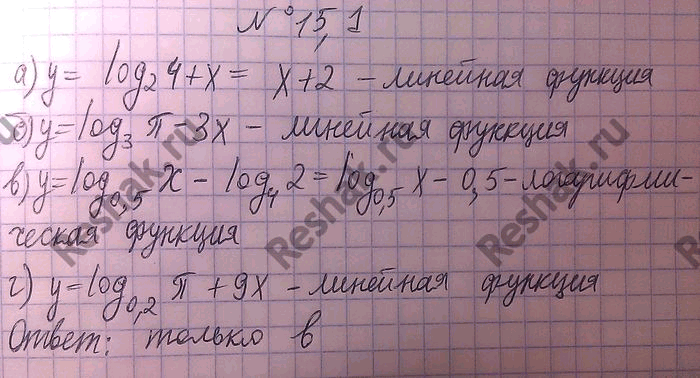 № 15,1
а) y = log₂ 4 + x = x + 2 - линейная функция
б) y = log₃ π - 3x - линейная функция
в) y = log₀,₅ x - log₄ 2 = log₀,₅ x - 0,5 - логарифми-
ческая функция
г) y = log₀,₂ π + 9x - линейная функция
Ответ: только в
Reshak.ru
Reshak.ru
Reshak.ru
Reshak.ru